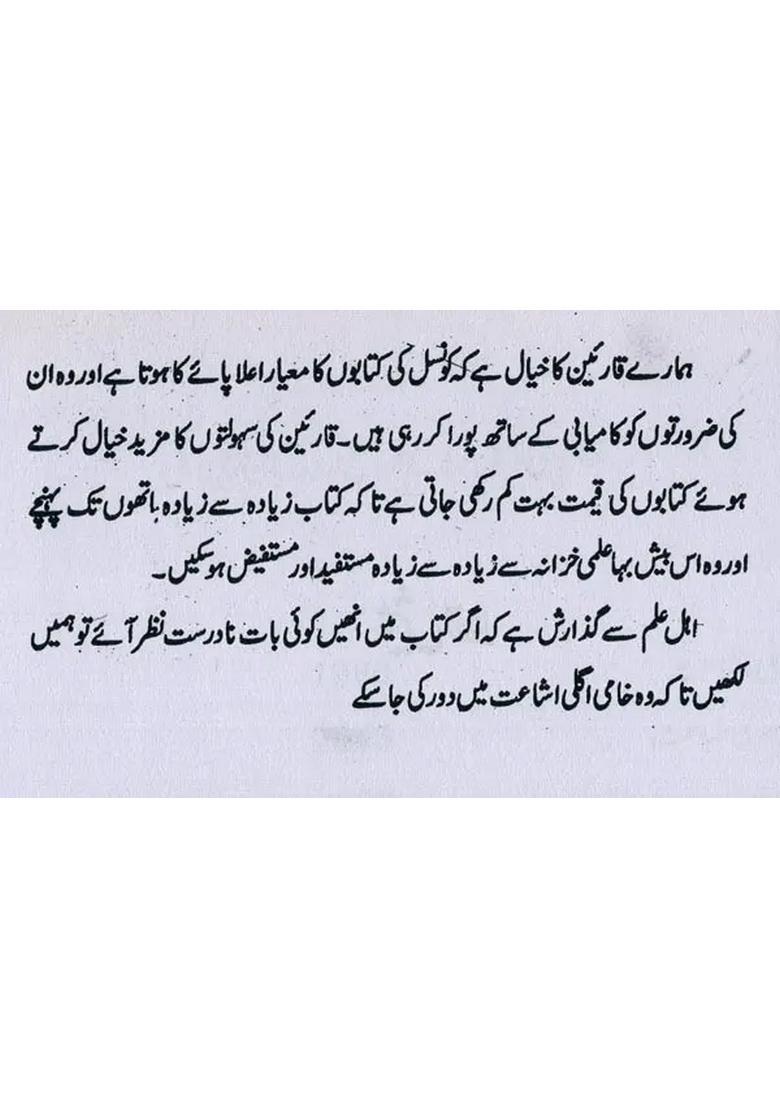 ہمارے قارئین کا خیال ہے کہ کونسل کی کتابوں کا معیار اعلا پائے کا ہوتا ہے اور وہ ان
کی ضرورتوں کو کامیابی کے ساتھ پورا کر رہی ہیں۔ قارئین کی سہولتوں کا مزید خیال کرتے
ہوئے کتابوں کی قیمت بہت کم رکھی جاتی ہے تاکہ کتاب زیادہ سے زیادہ ہاتھوں تک پہنچے
اور وہ اس بیش بہا علمی خزانہ سے زیادہ سے زیادہ مستفید اور مستفیض ہو سکیں۔
اہل علم سے گذارش ہے کہ اگر کتاب میں انھیں کوئی بات نادرست نظر آئے تو ہمیں
لکھیں تاکہ وہ خامی اگلی اشاعت میں دور کی جا سکے